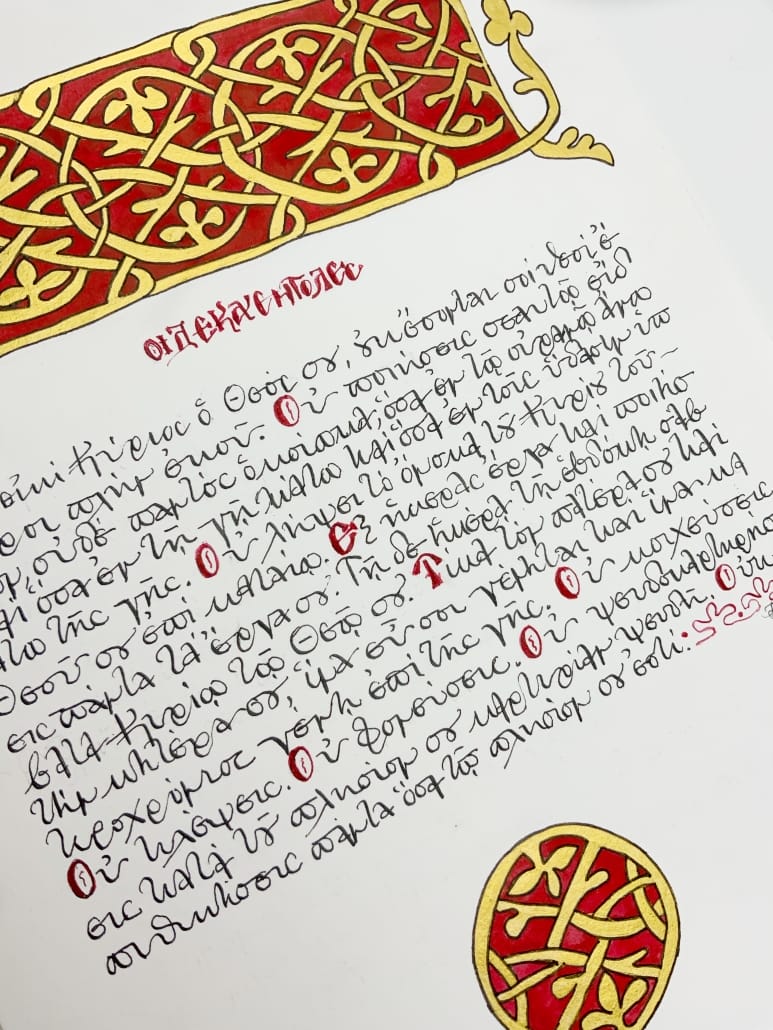 ΟΙ ΔΕΚΑ ΕΝΤΟΛΕΣ
εἰμι Κύριος ὁ Θεός σου, οὐκ ἔσονται σοι θεοὶ ἕ
εροι πλὴν ἐμοῦ. Οὐ ποιήσεις σεαυτῷ εἴδ
ον, οὐδὲ παντὸς ὁμοίωμα, ὅσα ἐν τῷ οὐρανῷ ἄνω
αὶ ὅσα ἐν τῇ γῇ κάτω καὶ ὅσα ἐν τοῖς ὕδασιν ὑπο
άτω τῆς γῆς. Οὐ λήψει τὸ ὄνομα τοῦ Κυρίου τοῦ
Θεοῦ σου ἐπὶ ματαίῳ. Ἓξ ἡμέρας ἔργα καὶ ποιήσ
εις πάντα τὰ ἔργα σου. Τῇ δὲ ἡμέρᾳ τῇ ἑβδόμῃ σάβ
βατα Κυρίῳ τῷ Θεῷ σου. Τίμα τὸν πατέρα σου καὶ
τὴν μητέρα σου, ἵνα εὖ σοι γένηται καὶ ἵνα μα
κροχρόνιος γένῃ ἐπὶ τῆς γῆς. Οὐ μοιχεύσεις
Οὐ κλέψεις. Οὐ φονεύσεις. Οὐ ψευδομαρτυρήσ
εις κατὰ τοῦ πλησίον σου μαρτυρίαν ψευδῆ. Οὐκ
ἐπιθυμήσεις πάντα ὅσα τῷ πλησίον σου ἐστί.